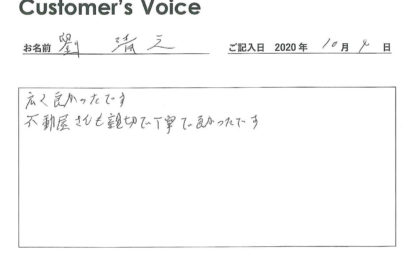 Customer's Voice
お名前 劉 靖之 ご記入日 2020 年 10 月 4 日
広く良かったです
不動屋さんも親切で丁寧で良かったです